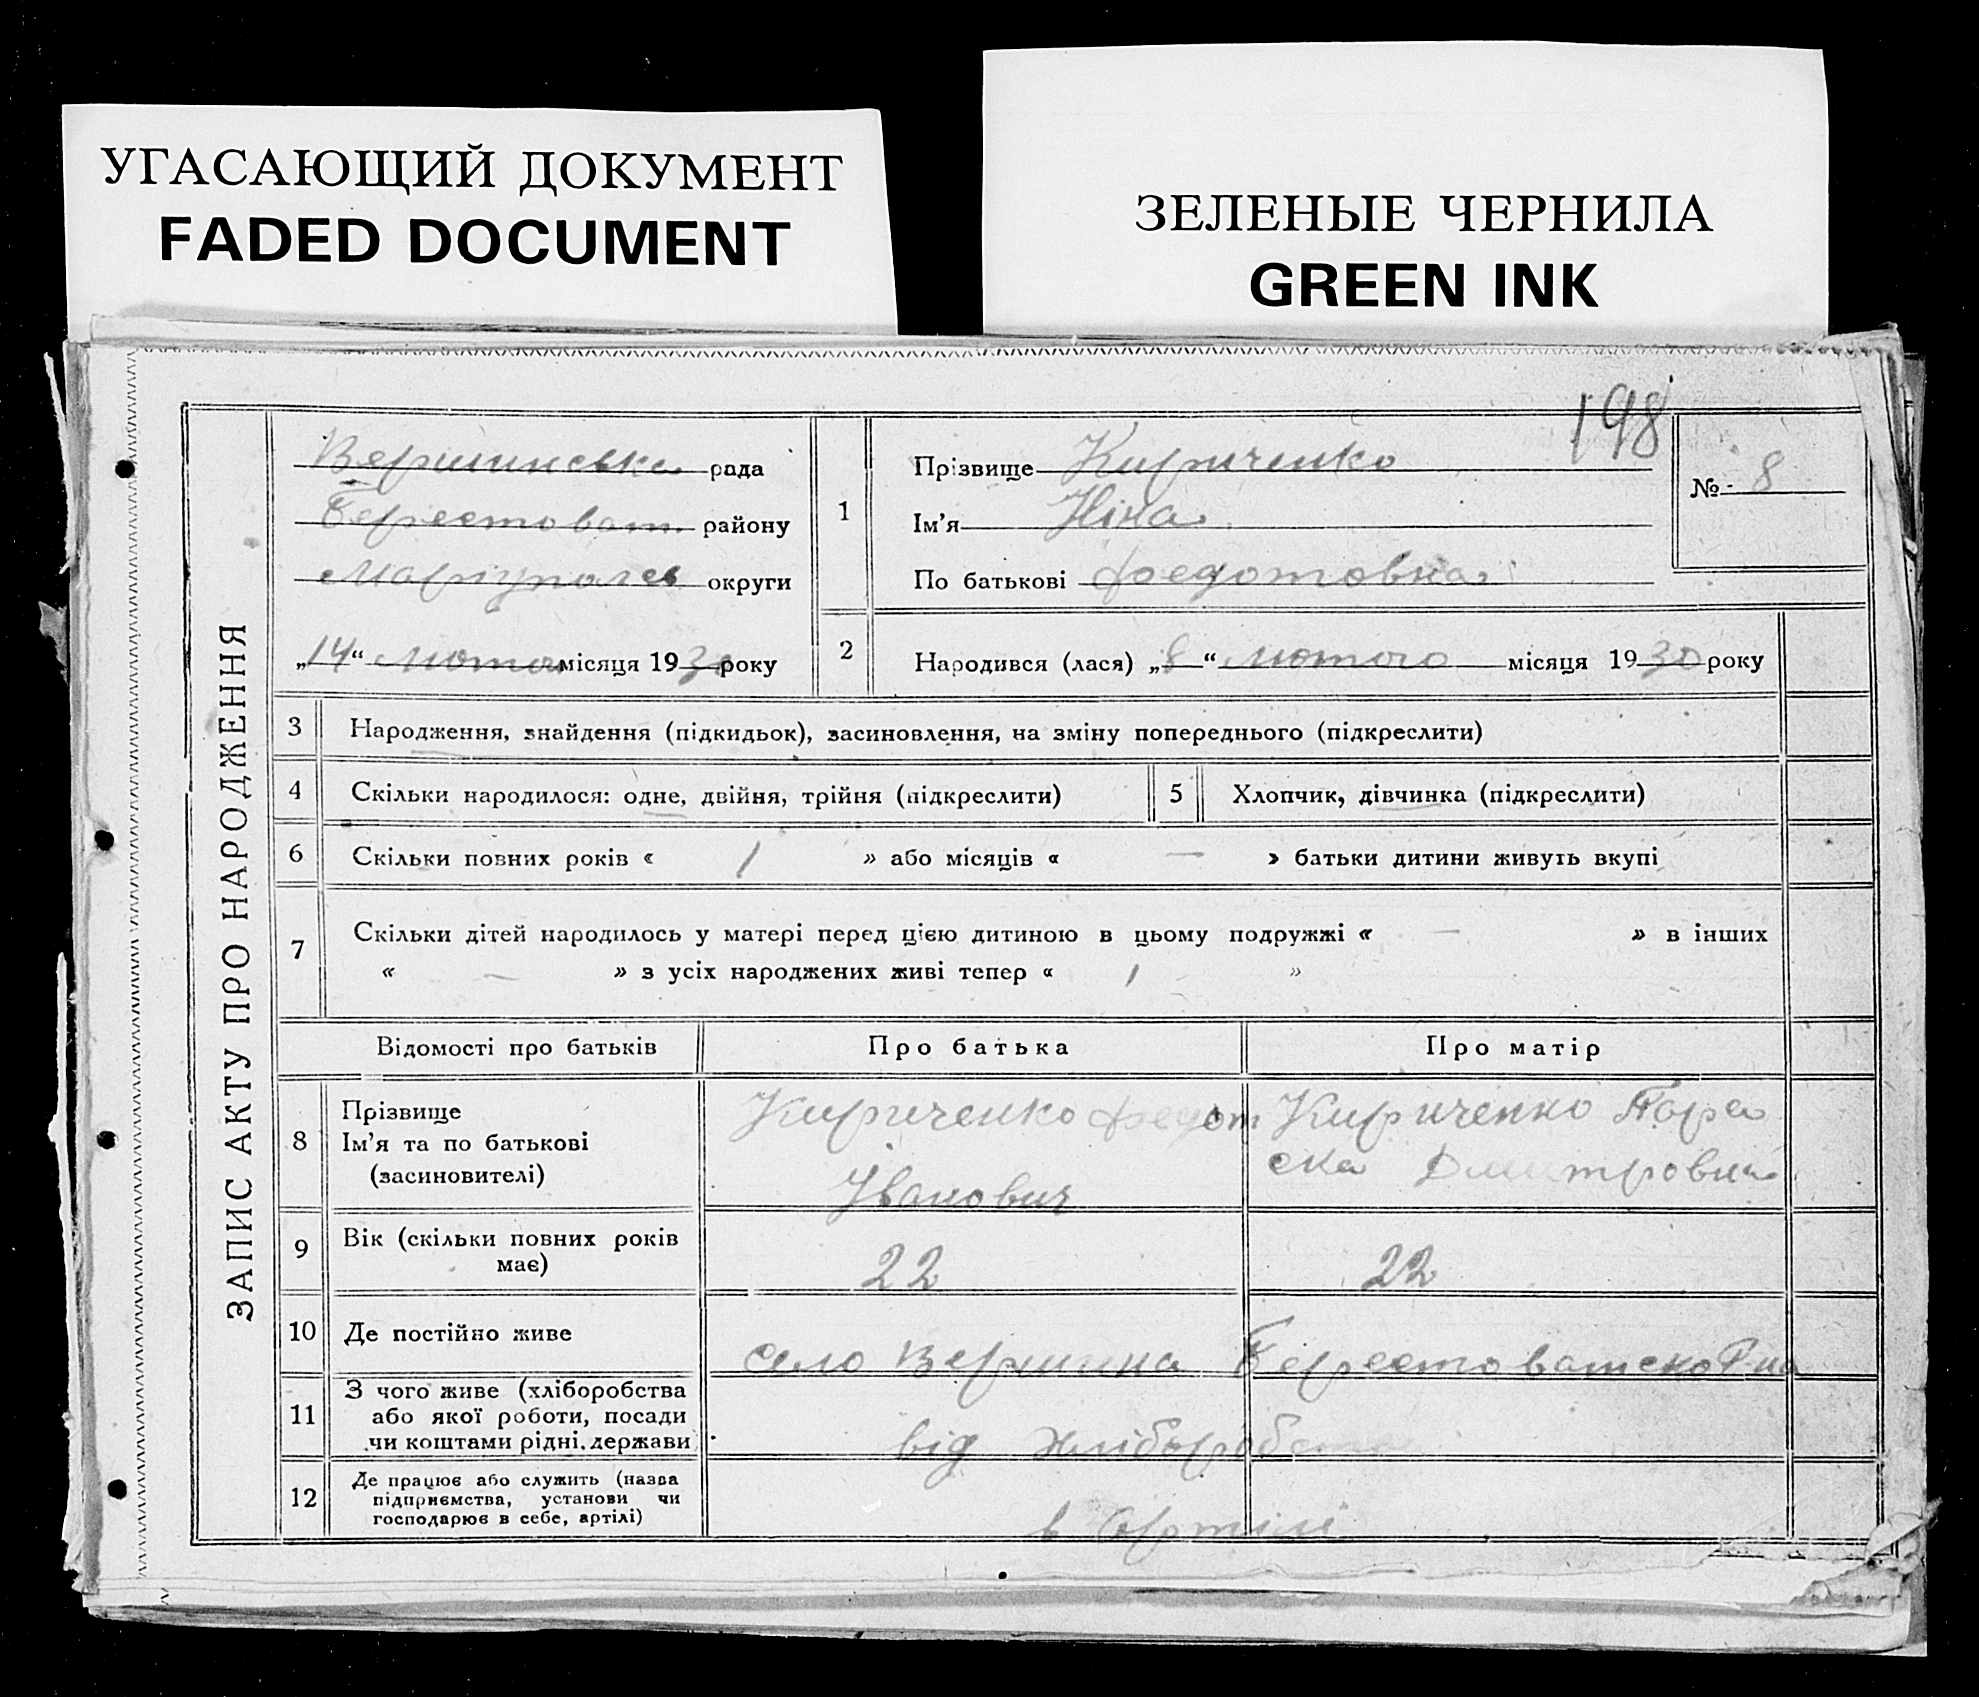 УГАСАЮЩИЙ ДОКУМЕНТ
FADED DOCUMENT
ЗЕЛЕНЫЕ ЧЕРНИЛА
GREEN INK
198
ЗАПИС АКТУ ПРО НАРОДЖЕННЯ
Вершинська рада
Берестоват. району
Маріупольс округи
„14“ лютого місяця 1930 року
1 Прізвище Кириченко
Ім'я Ніна
По батькові Федотовна
№ 8
2 Народився (лася) „8“ лютого місяця 1930 року
3 Народження, знайдення (підкидьок), засиновлення, на зміну попереднього (підкреслити)
4 Скільки народилося: одне, двійня, трійня (підкреслити) 5 Хлопчик, дівчинка (підкреслити)
6 Скільки повних років « 1 » або місяців « — » батьки дитини живуть вкупі
7 Скільки дітей народилось у матері перед цією дитиною в цьому подружжі « — » в інших
« — » з усіх народжених живі тепер « 1 »
Відомості про батьків Про батька Про матір
8 Прізвище
Ім'я та по батькові
(засиновителі)
Кириченко Федот
Іванович
Кириченко Пара
ска Дмитровна
9 Вік (скільки повних років
має)
22 22
10 Де постійно живе
село Вершина Берестоватско Р-на
11 З чого живе (хліборобства
або якої роботи, посади
чи коштами рідні, держави
від хліборобства
12 Де працює або служить (назва
підприємства, установи чи
господарює в себе, артілі)
в Артілі